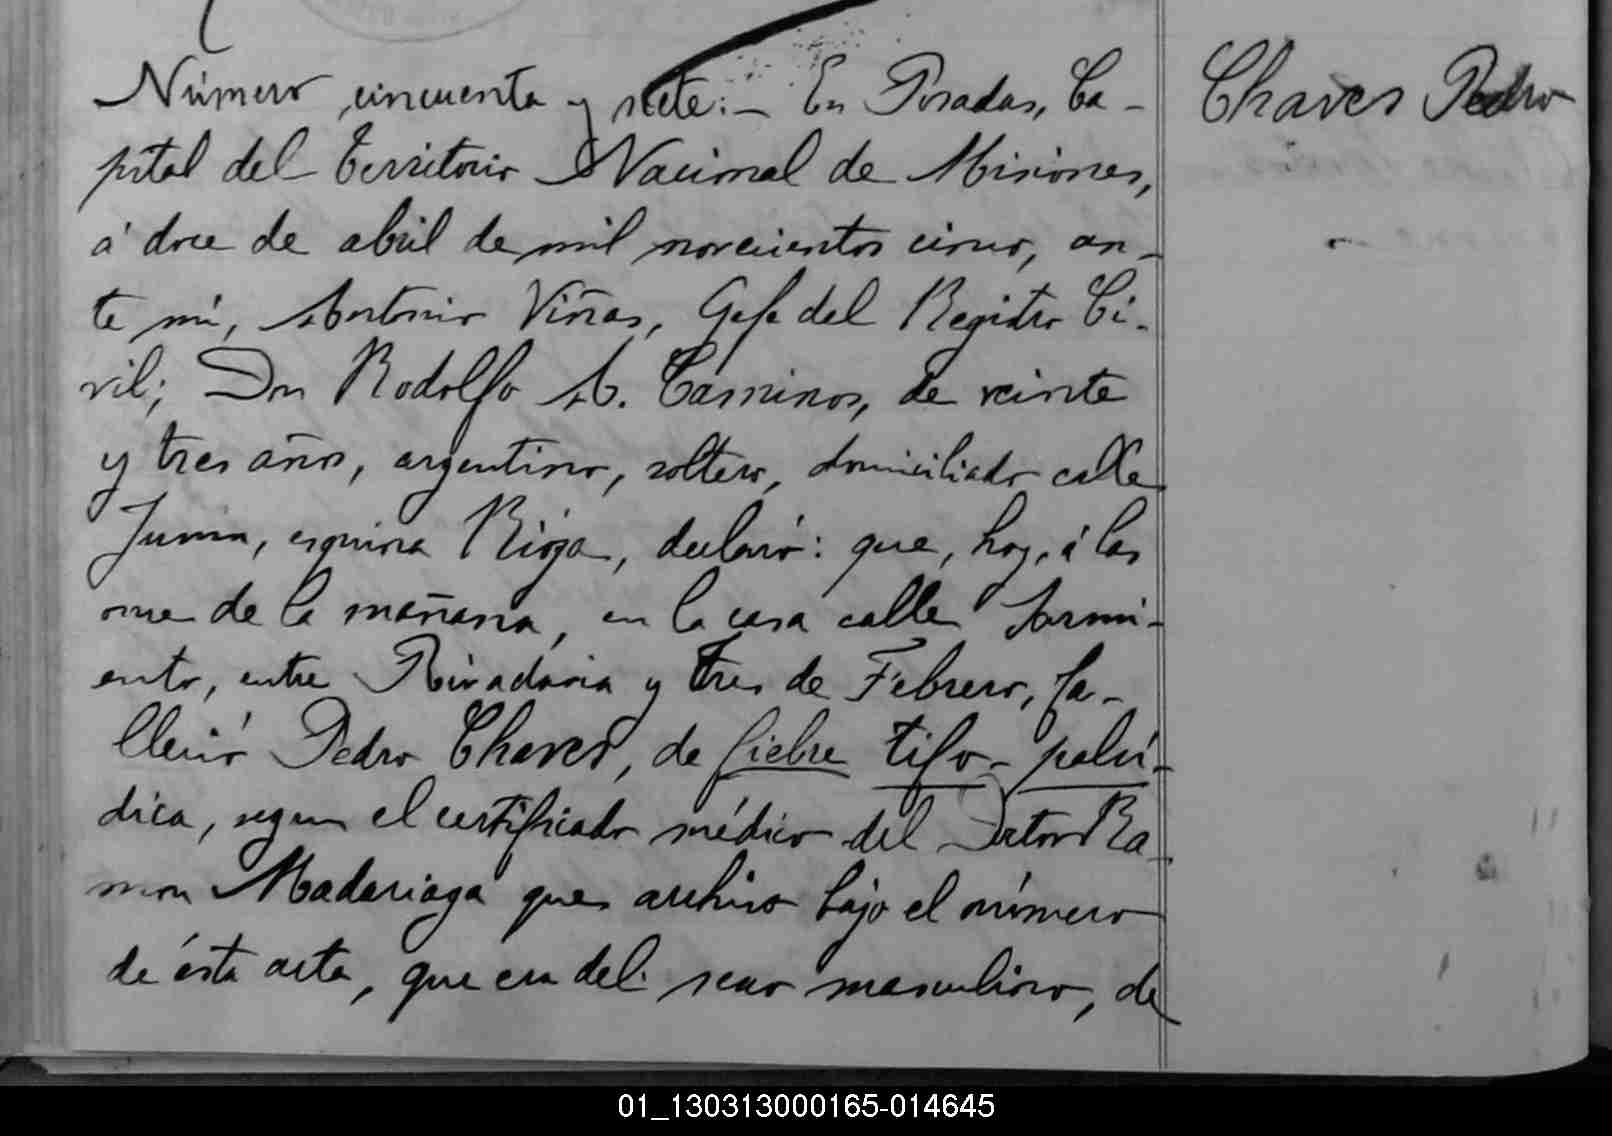 Número cincuenta y siete:- En Posadas, Ca-
Chaves Pedro
pital del Territorio Nacional de Misiones,
á doce de abril de mil novecientos cinco, an-
te mí, Antonio Viñas, Gefe del Registro Ci-
vil; Don Rodolfo A. Caminos, de veinte
y tres años, argentino, soltero, domiciliado calle
Junin, esquina Rioja, declaró: que, hoy, á las
once de la mañana, en la casa calle Sarmi-
ento, entre Rivadavia y Tres de Febrero, fa-
lleció Pedro Chaves, de fiebre tifo-palú-
dica, segun el certificado médico del Doctor Ra-
mon Madariaga que archivo bajo el número
de ésta acta, que era del sexo masculino, de
01_130313000165-014645